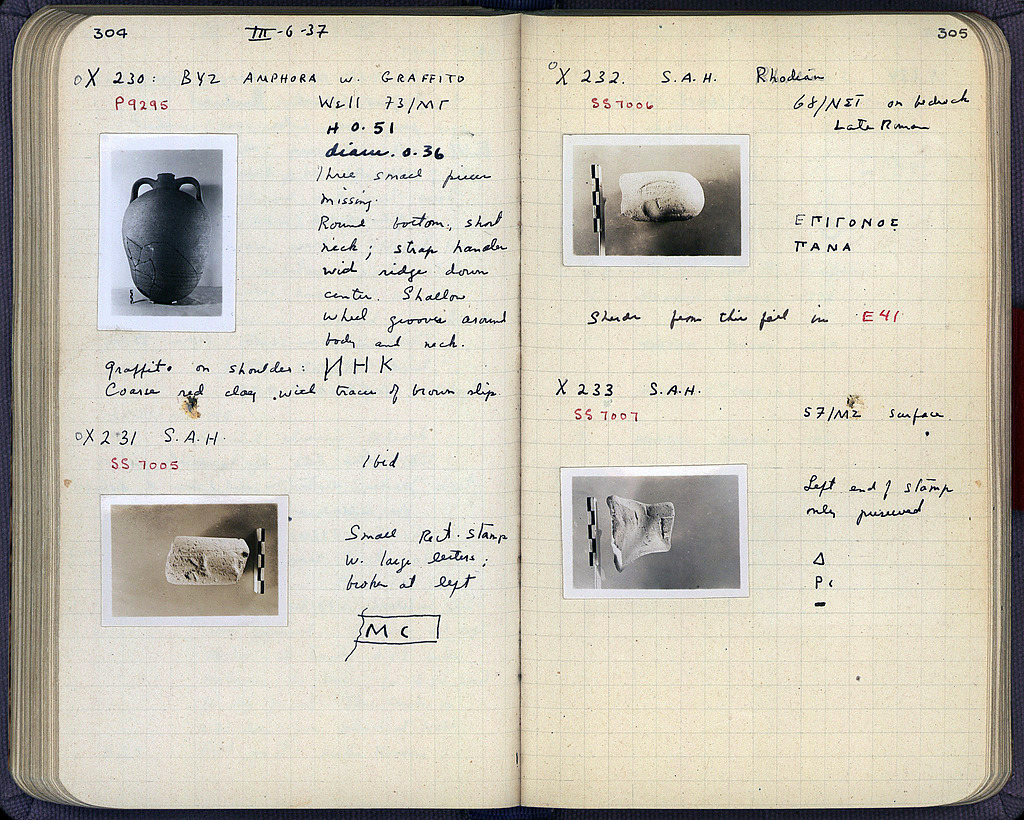 304
III-6-37
X 230: BYZ AMPHORA w. GRAFFITO
P9295
Well 73/ΜΓ
H 0.51
diam. 0.36
Three small pieces
missing.
Round bottom; short
neck; strap handles
with ridge down
center. Shallow
wheel grooves around
body and neck.
graffito on shoulder: ИНК
Coarse red clay with traces of brown slip.
X 231 S.A.H.
SS 7005
Ibid
Small Rect. stamp
w. large letters;
broken at left
MC
305
X 232. S.A.H. Rhodian
SS 7006
on bedrock
Late Roman
ΕΠΙΓΟΝΟΣ
ΠΑΝΑ
Sherds from this fill in E41
X 233 S.A.H.
SS 7007
57/MZ surface
Left end of stamp
only preserved
Δ
Ρι